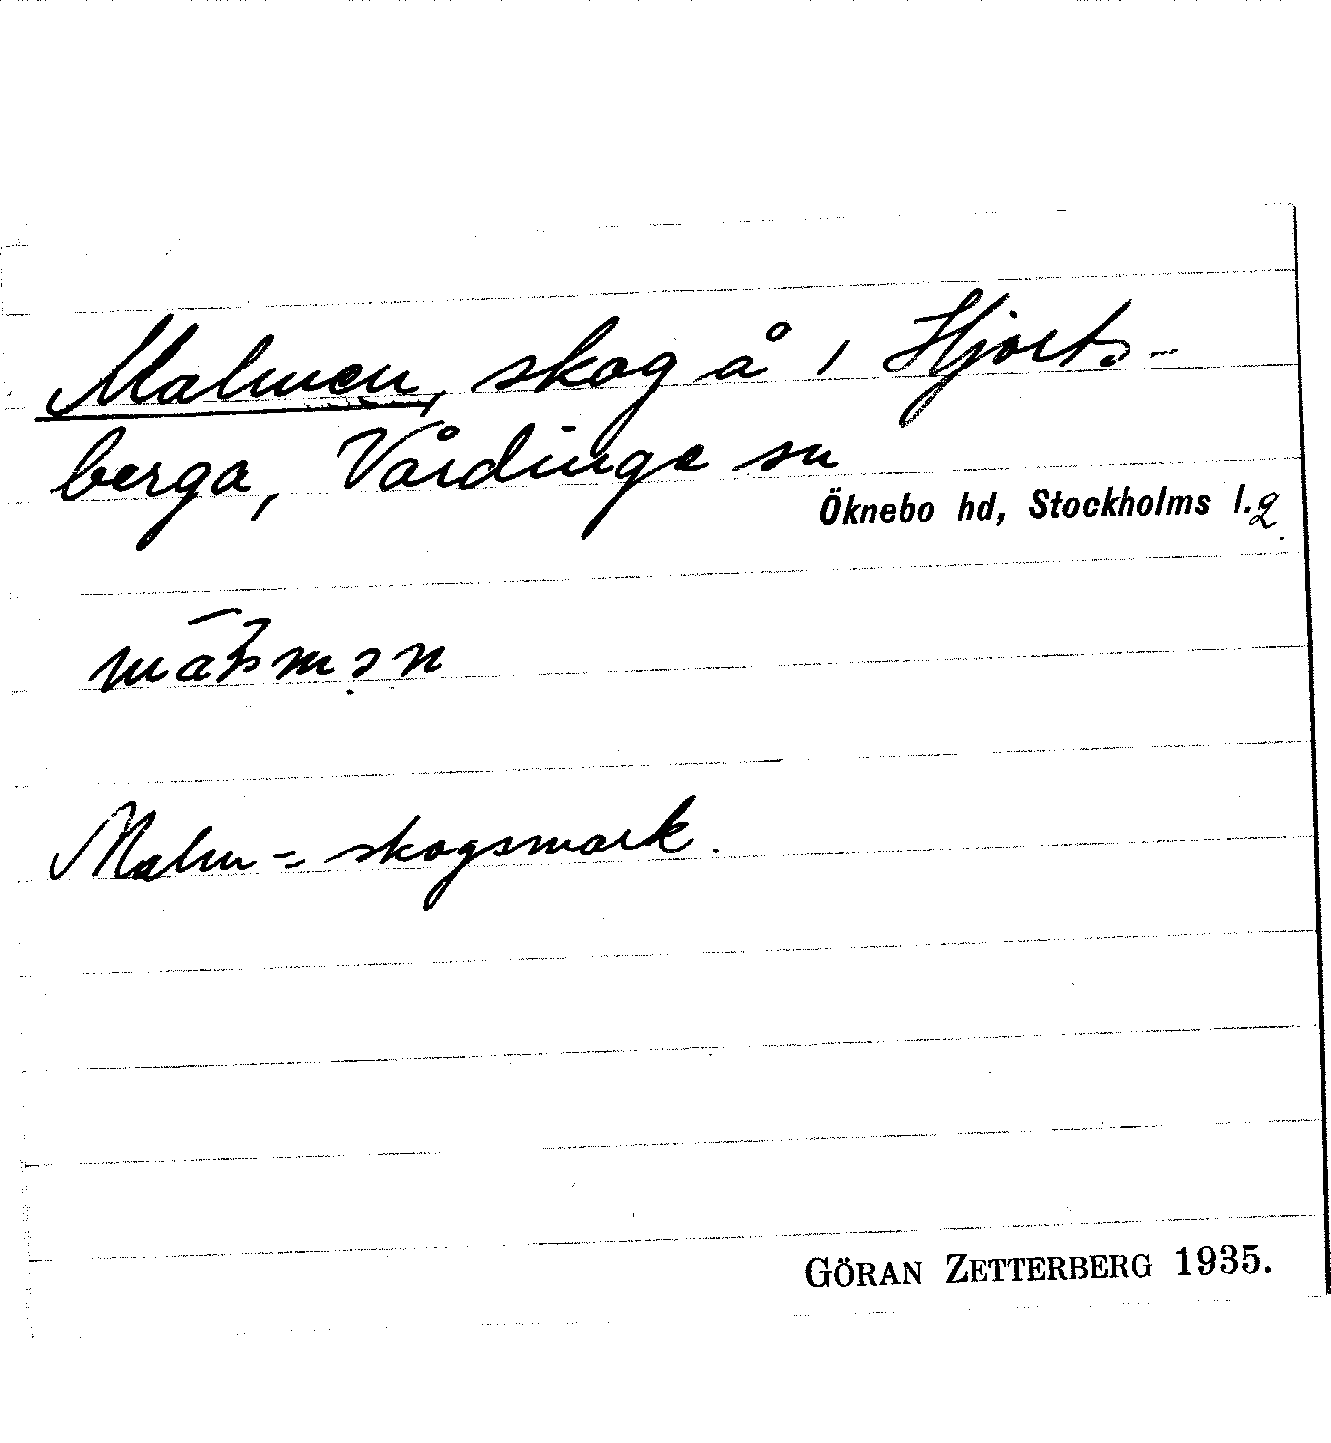 Malmen, skog å 1 Hjorts-
berga, Vårdinge sn
Öknebo hd, Stockholms l.
Malm = skogsmark.
GÖRAN ZETTERBERG 1935.